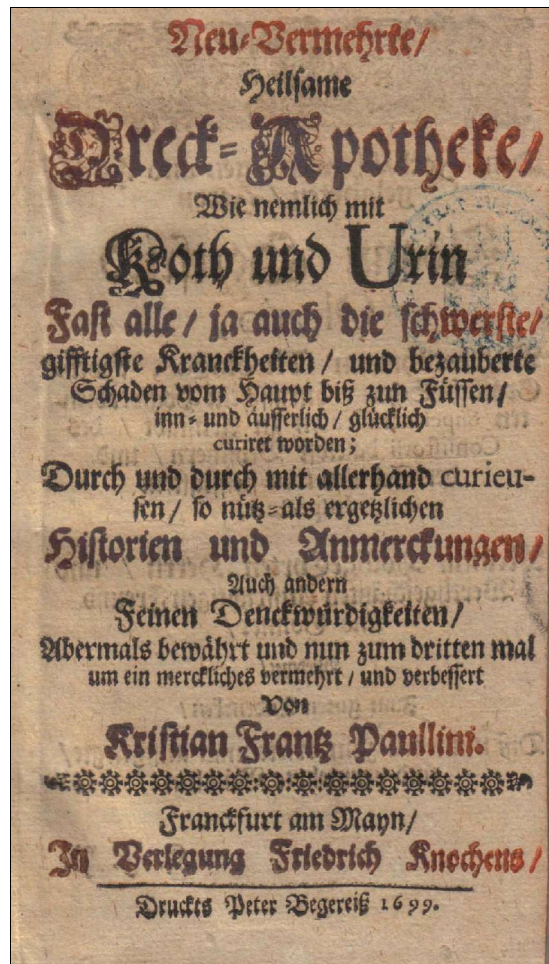 Neu-Vermehrte/
Heilsame
Dreck-Apotheke/
Wie nemlich mit
Koth und Urin
Fast alle/ ja auch die schwerste/
gifftigste Kranckheiten/ und bezauberte
Schaden vom Haupt biß zun Füssen/
inn- und äusserlich/ glücklich
curiret worden;
Durch und durch mit allerhand curieu-
sen/ so nütz- als ergetzlichen
Historien und Anmerckungen/
Auch andern
Feinen Denckwürdigkeiten/
Abermals bewährt und nun zum dritten mal
um ein merckliches vermehrt/ und verbessert
Von
Kristian Frantz Paullini.
Franckfurt am Mayn/
In Verlegung Friedrich Knochens/
Druckts Peter Begereiß 1699.